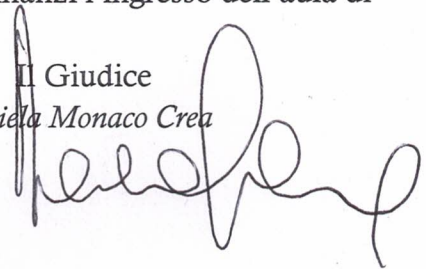 nanzi l'ingresso dell'aula di
Il Giudice
iela Monaco Crea